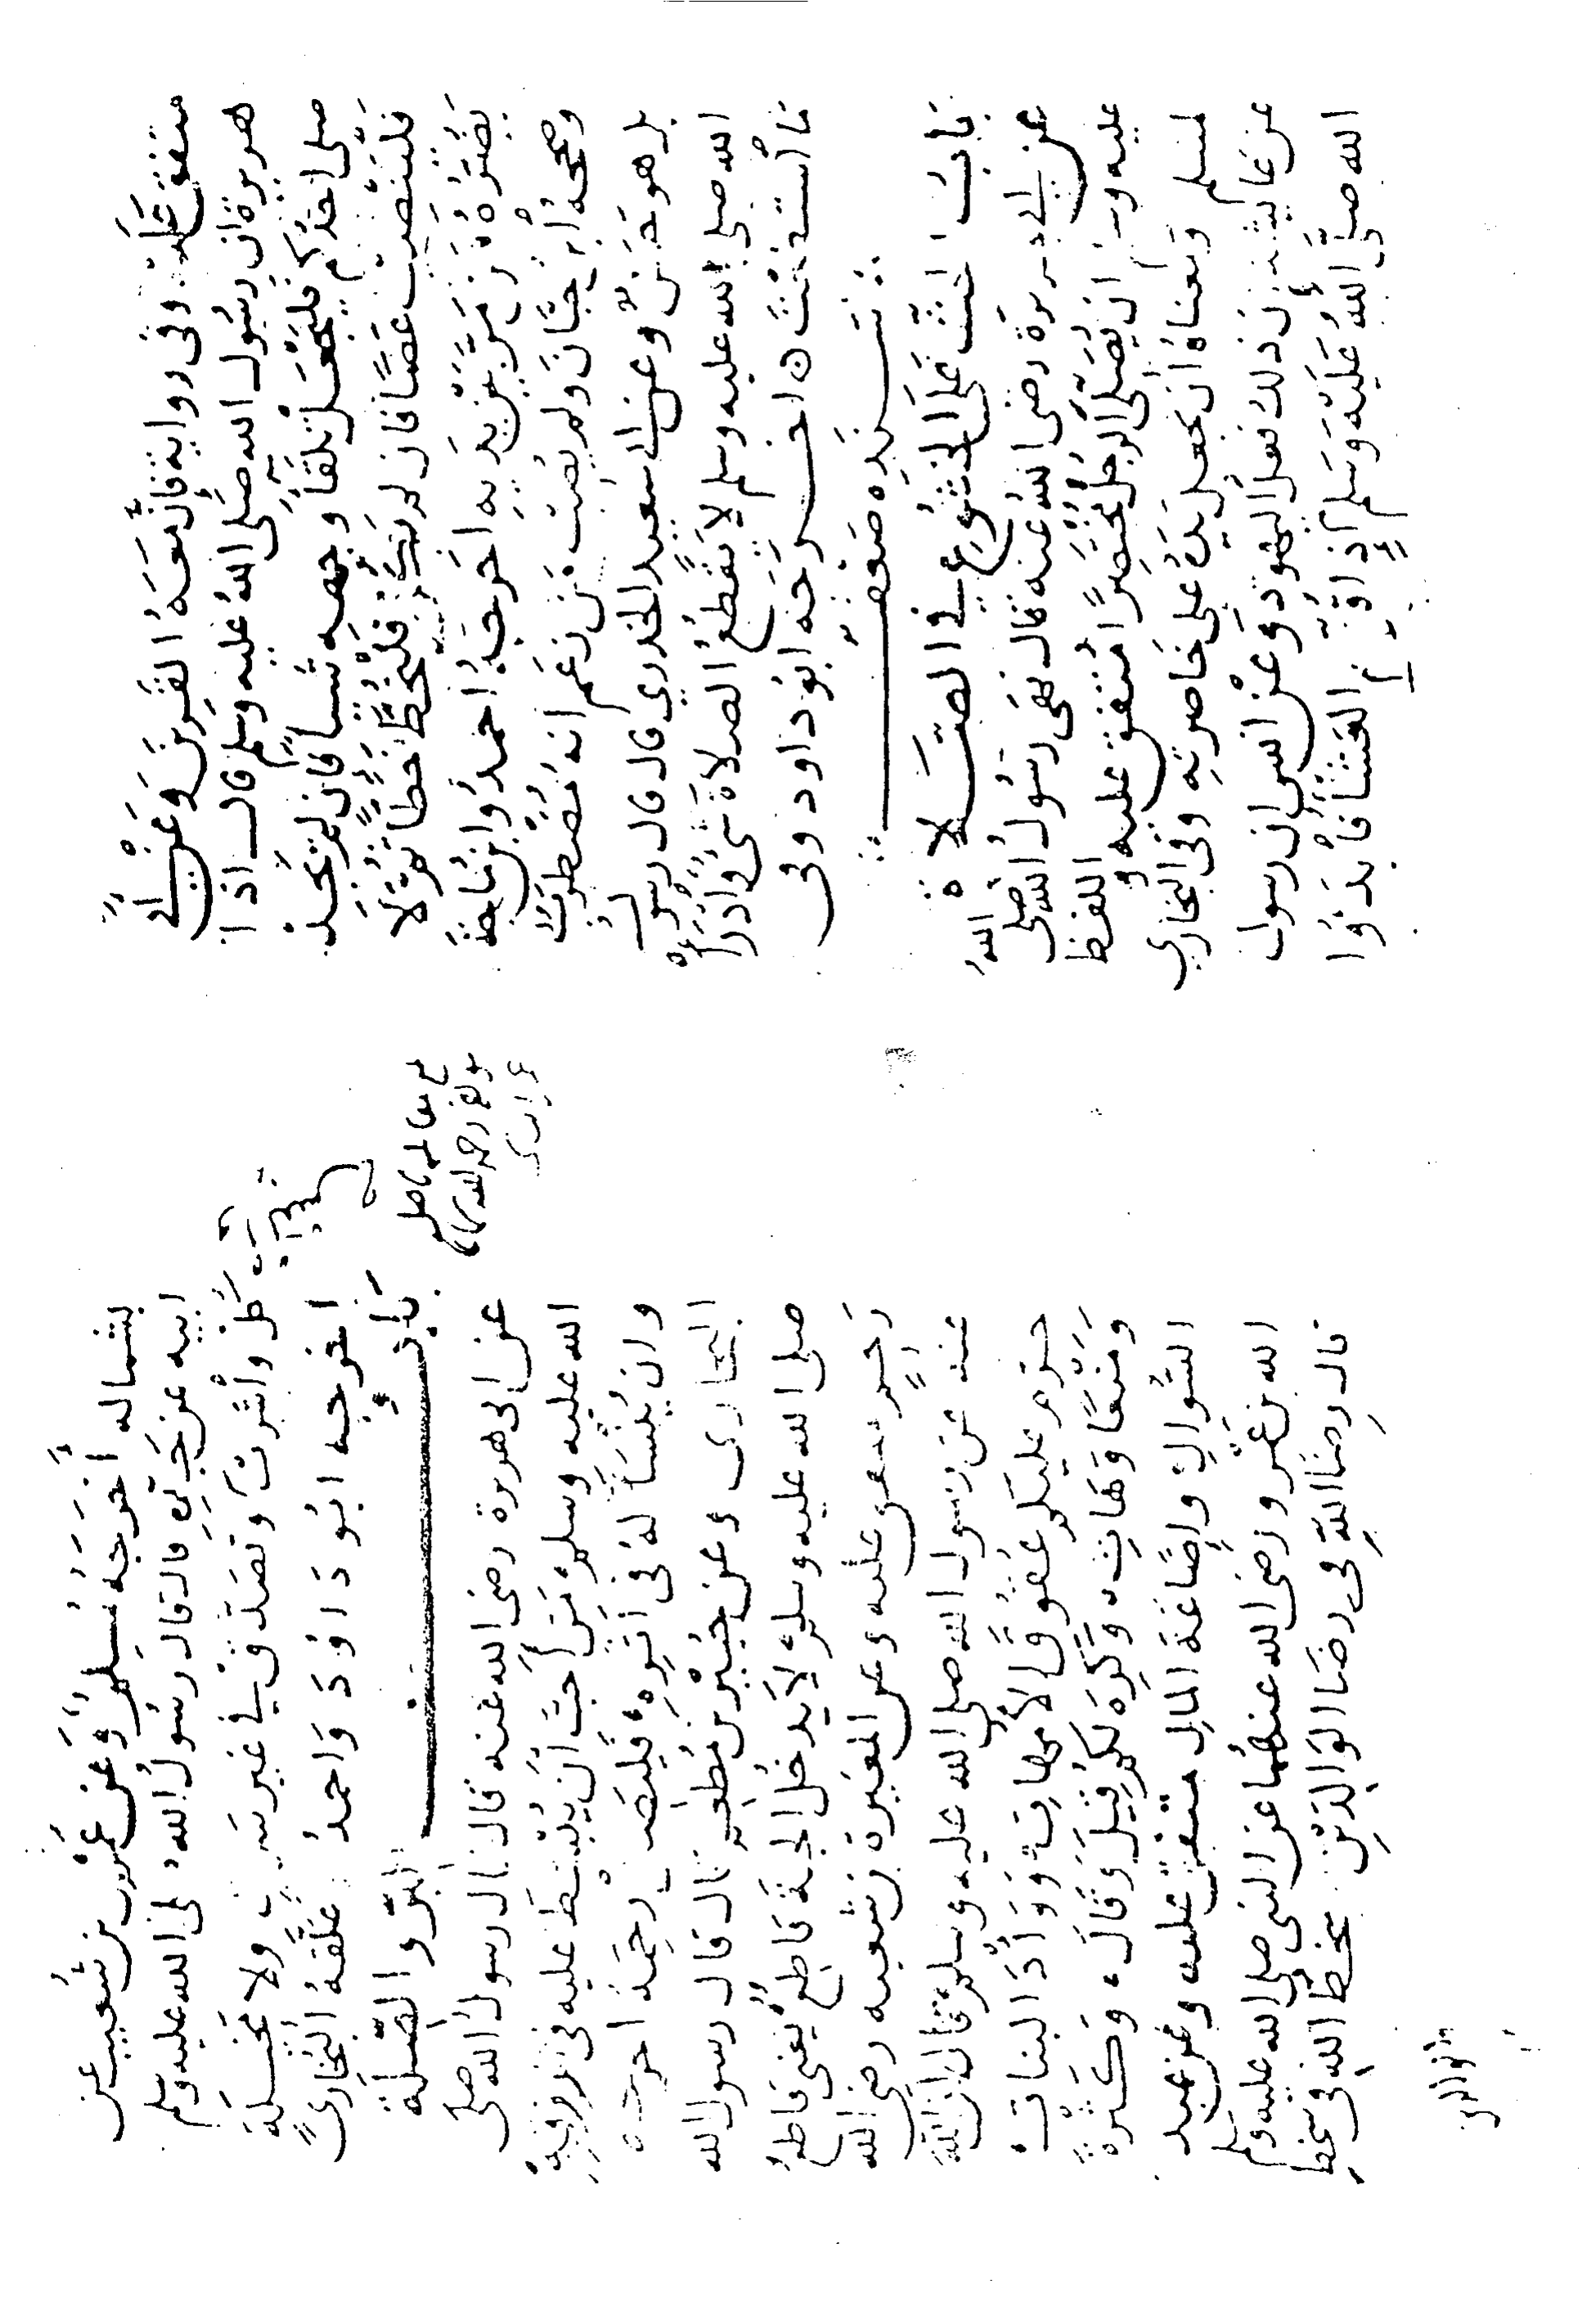 متفق عليه وفى رواية فان معه القرين وعن ابي
هريرة ان رسول الله صلى الله عليه وسلم قال اذا
صلى احدكم فليجعل تلقاً وجهه شيئا فان لم يجد
فلينصب عصًا فان لم يكن فليخط خطا ثم لا
يضره من مر بين يديه اخرجه احمد وابن ماجة
وصححه ابن حبان ولم يصب من زعم انه مضطرب
بل هو حسن وعن ابي سعيد الخدري قال قال رسول
الله صلى الله عليه وسلم لا يقطع الصلاة شئ وادرأ
ما استطعت اخرجه ابو داود وفى
سنده ضعف
باب الحث على الخشوع في الصلاة
عن ابي هريرة رضى الله عنه قال نهى رسول الله صلى الله
عليه وسلم ان يصلى الرجل مختصرًا متفق عليه واللفظ
لمسلم ومعناه أن يجعل يده على خاصرته وفى البخاري
عن عايشة ان ذلك فعل اليهود وعن انس ان رسول
الله صلى الله عليه وسلم اذا قدم العشأ فأبدؤا
بشماله أخرجه مسلم وعن عمرو بن شعيب عن
ابيه عن جده قال قال رسول الله صلى الله عليه وسلم
كل وأشرب وتصدق في غير سرف ولا مخيلة
اخرجه ابو داود واحمد علقه البخارى
باب البر والصلة
عن ابى هريرة رضى الله عنه قال قال رسول الله صلى
الله عليه وسلم من أحب أن يبسط عليه فى رزقه
وان ينسأ له فى أثره فليصل رحمه اخرجه
البخارى وعن جبير بن مطعم قال قال رسول الله
صلى الله عليه وسلم لا يدخل الجنة قاطع يعنى قاطع
رحم متفق عليه وعن المغيرة بن شعبه رضى الله
عنه عن رسول الله صلى الله عليه وسلم قال ان الله
حرم عليكم عقوق الأمهات ووأد البنات
ومنعًا وهات وكره لكم قيل وقال وكثرة
السوال وإضاعة المال متفق عليه وعن عبد
الله بن عمر ورضى الله عنهما عن النبى صلى الله عليه وسلم
قال رضا الله فى رضا الوالدين وسخط الله فى سخط
الوالدين